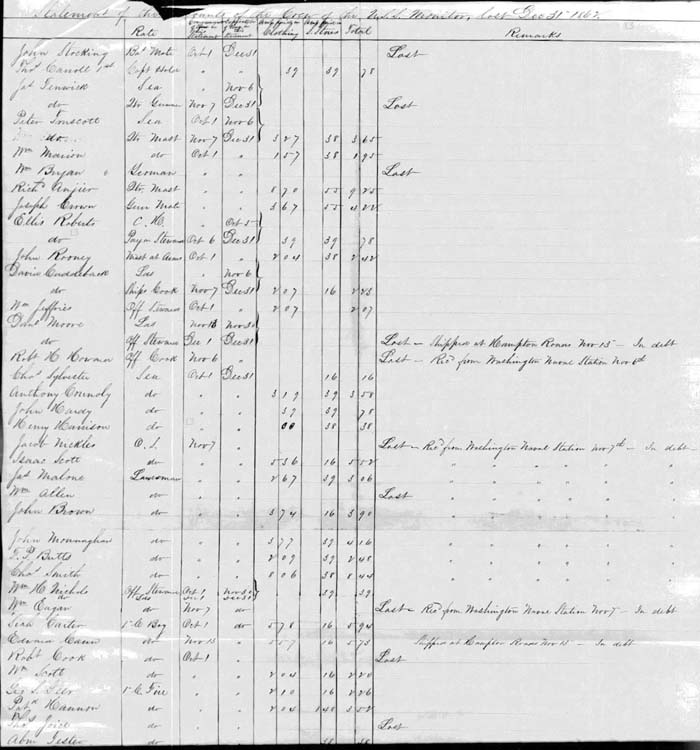 Statement of the Accounts of the Crew of the U.S.S. Monitor, lost Dec 31st 1862
Rate Clothing S. Stores Total Remarks
John Stocking Bos Mate Oct 1 Dec 31 Lost
Thos Carroll 1st Capt Hold " " 39 39 78
Jas Fenwick Sea " Nov 6
do Qr Gunner Nov 7 Dec 31 Lost
Peter Truscott Sea Oct 1 Nov 6
do Qr Mast Nov 7 Dec 31 3 27 38 3 65
Wm Marion do Oct 1 " 1 57 38 1 95
Wm Bryan Yeoman " " Lost
Richd Anjier Qr Mast " " 8 70 55 9 25
Joseph Crown Gunr Mate " " 3 67 55 4 22
Ellis Roberts C. H. " Oct 5
do Paym Steward Oct 6 Dec 31 39 39 78
John Rooney Mast at Arms Oct 1 " 2 04 38 2 42
David Cuddeback Lds " Nov 6
do Ships Cook Nov 7 Dec 31 2 07 16 2 23
Wm Jeffries Off Steward Oct 1 " 2 07 2 07
Danl Moore Lds Nov 15 Nov 30
do Off Steward Dec 1 Dec 31 Lost - Shipped at Hampton Roads Nov 15 - In debt
Robt H Howard Off Cook Nov 6 " Lost - Recd from Washington Naval Station Nov 6th
Chas Sylvester Sea Oct 1 Dec 31 16 16
Anthony Connoly do " " 3 19 39 3 58
John Hardy do " " 39 39 78
Henry Harrison do " " 38 38
Jacob Nickles O. S. Nov 7 " Lost - Recd from Washington Naval Station Nov 7th - In debt
Isaac Scott do " " 5 36 16 5 52 " " " " "
Jas Malone Landsman " " 2 67 39 3 06 " " " " "
Wm Allen do " " Lost " " " " "
John Brown do " " 3 74 16 3 90 " " " " "
John Monnaghan do " " 3 77 39 4 16 " " " " "
D. P. Butts do " " 2 09 39 2 48 " " " " "
Chas Smith do " " 8 06 38 8 44 " " " " "
Wm H Nichols Off Steward Oct 1 Nov 30
do Lds Dec 1 Dec 31 39 39
Wm Eagan do Nov 7 do Lost - Recd from Washington Naval Station Nov 7 - In debt
Siah Carter 1st C Boy Oct 1 do 5 78 16 5 94
Edward Cann do Nov 15 " 5 57 16 5 73 Shipped at Hampton Roads Nov 15 - In debt
Robt Cook do Oct 1 " Lost
Wm Scott do " " 2 04 16 2 20
Geo S. Geer 1st C Fire " " 2 10 16 2 26
Patk Hannon do " " 2 04 1 48 3 52
Thos Joice do " " Lost
Abm Tester do " " 38 38